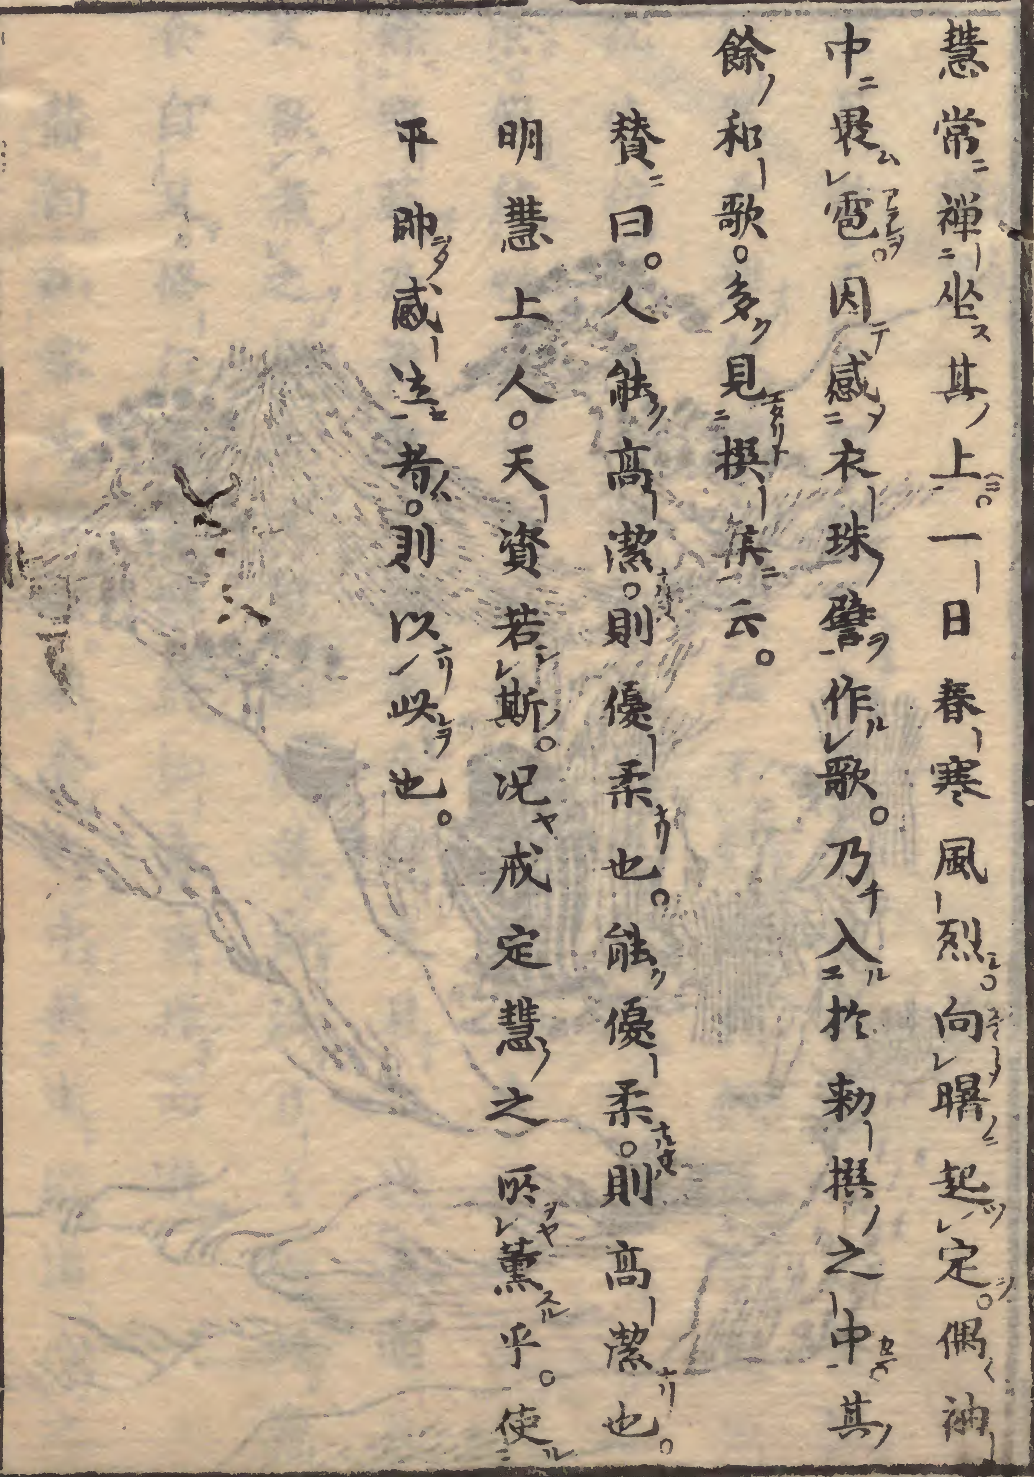 慧常禅坐其上。一日春寒風烈。向曙起定。偶衲
中畏雹。因感衣珠譬作歌。乃入於勅撰之中其
餘和歌。多見撰集云。
賛曰。人能高潔。則優柔也。能優柔。則高潔也。
明慧上人。天資若斯。况戒定慧之所薫乎。使
平帥感泣者。則以此也。